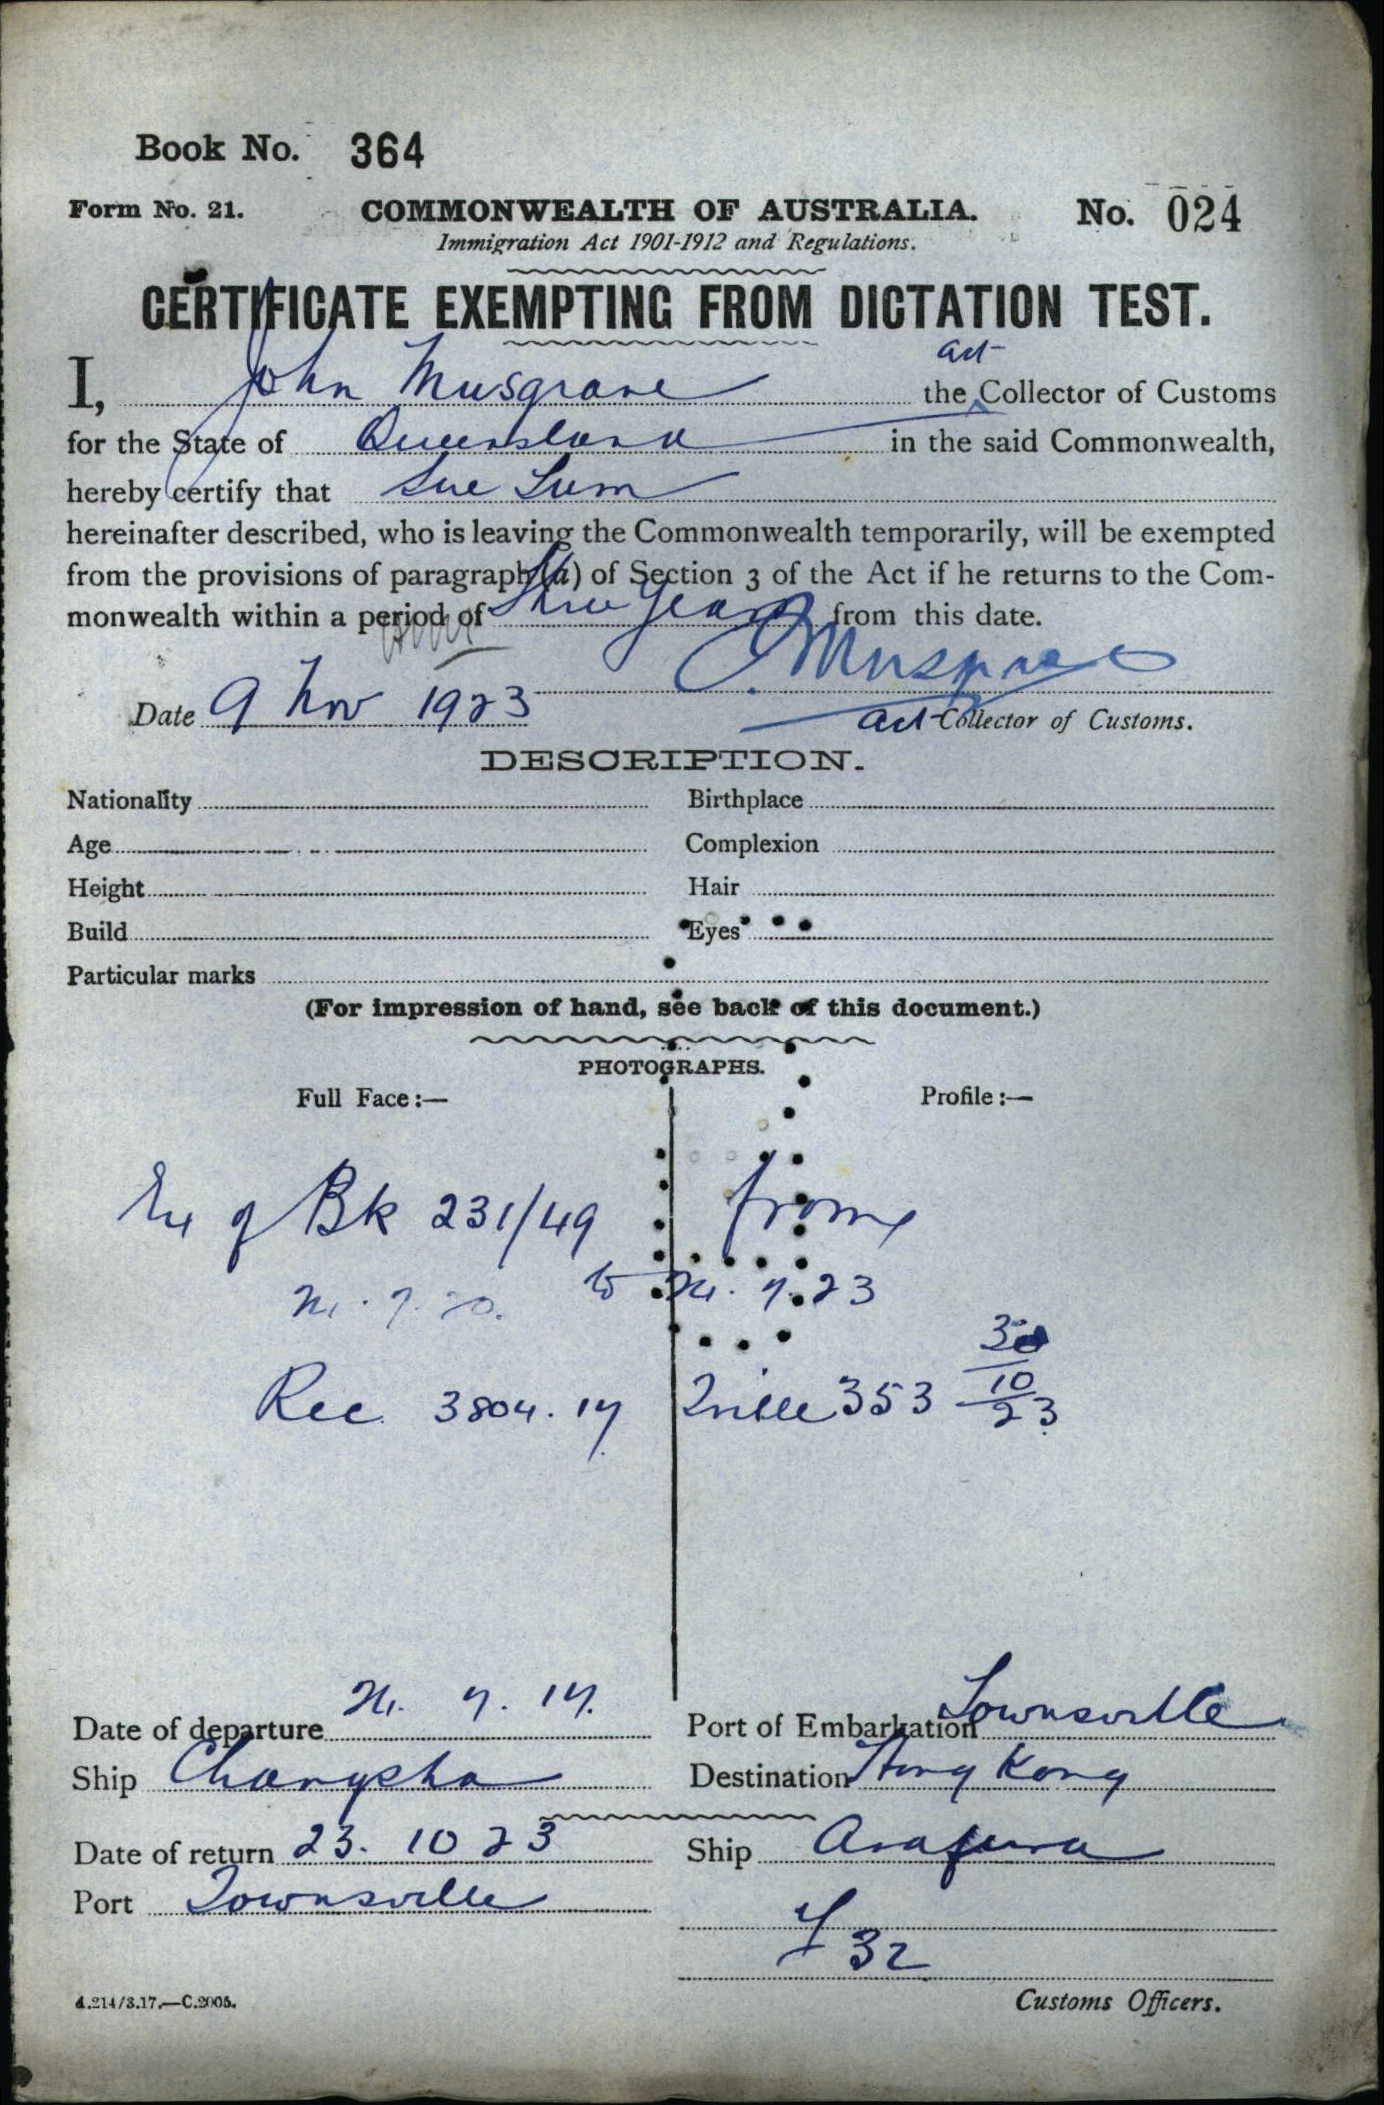 Book No. 364
Form No. 21. COMMONWEALTH OF AUSTRALIA. No. 024
Immigration Act 1901-1912 and Regulations.
CERTIFICATE EXEMPTING FROM DICTATION TEST.
act
I, John Musgrave the Collector of Customs
for the State of Queensland in the said Commonwealth,
hereby certify that Sue Lum
hereinafter described, who is leaving the Commonwealth temporarily, will be exempted
from the provisions of paragraph (a) of Section 3 of the Act if he returns to the Com-
monwealth within a period of Three Years from this date.
J Musgrave
Date 9 Nov 1923 act Collector of Customs.
DESCRIPTION.
Nationality Birthplace
Age Complexion
Height Hair
Build Eyes
Particular marks
(For impression of hand, see back of this document.)
PHOTOGRAPHS.
Full Face:— Profile:—
Ex of Bk 231/49 from
21.7.20. to 21.7.23
Rec. 3804.17 Tville 353 30/10/23
Date of departure 21. 7. 17. Port of Embarkation Townsville
Ship Changsha Destination Hong Kong
Date of return 23. 10 23 Ship Arafura
Port Townsville
32
Customs Officers.
4.214/3.17.—C.2005.